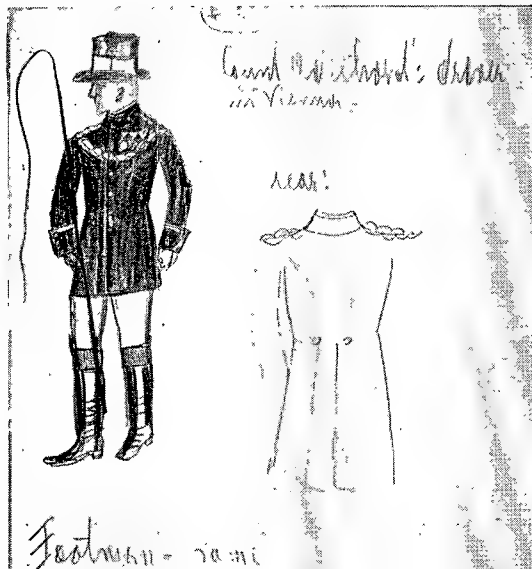 Count Michael's driver
in Vienna.
rear:
Footman - same